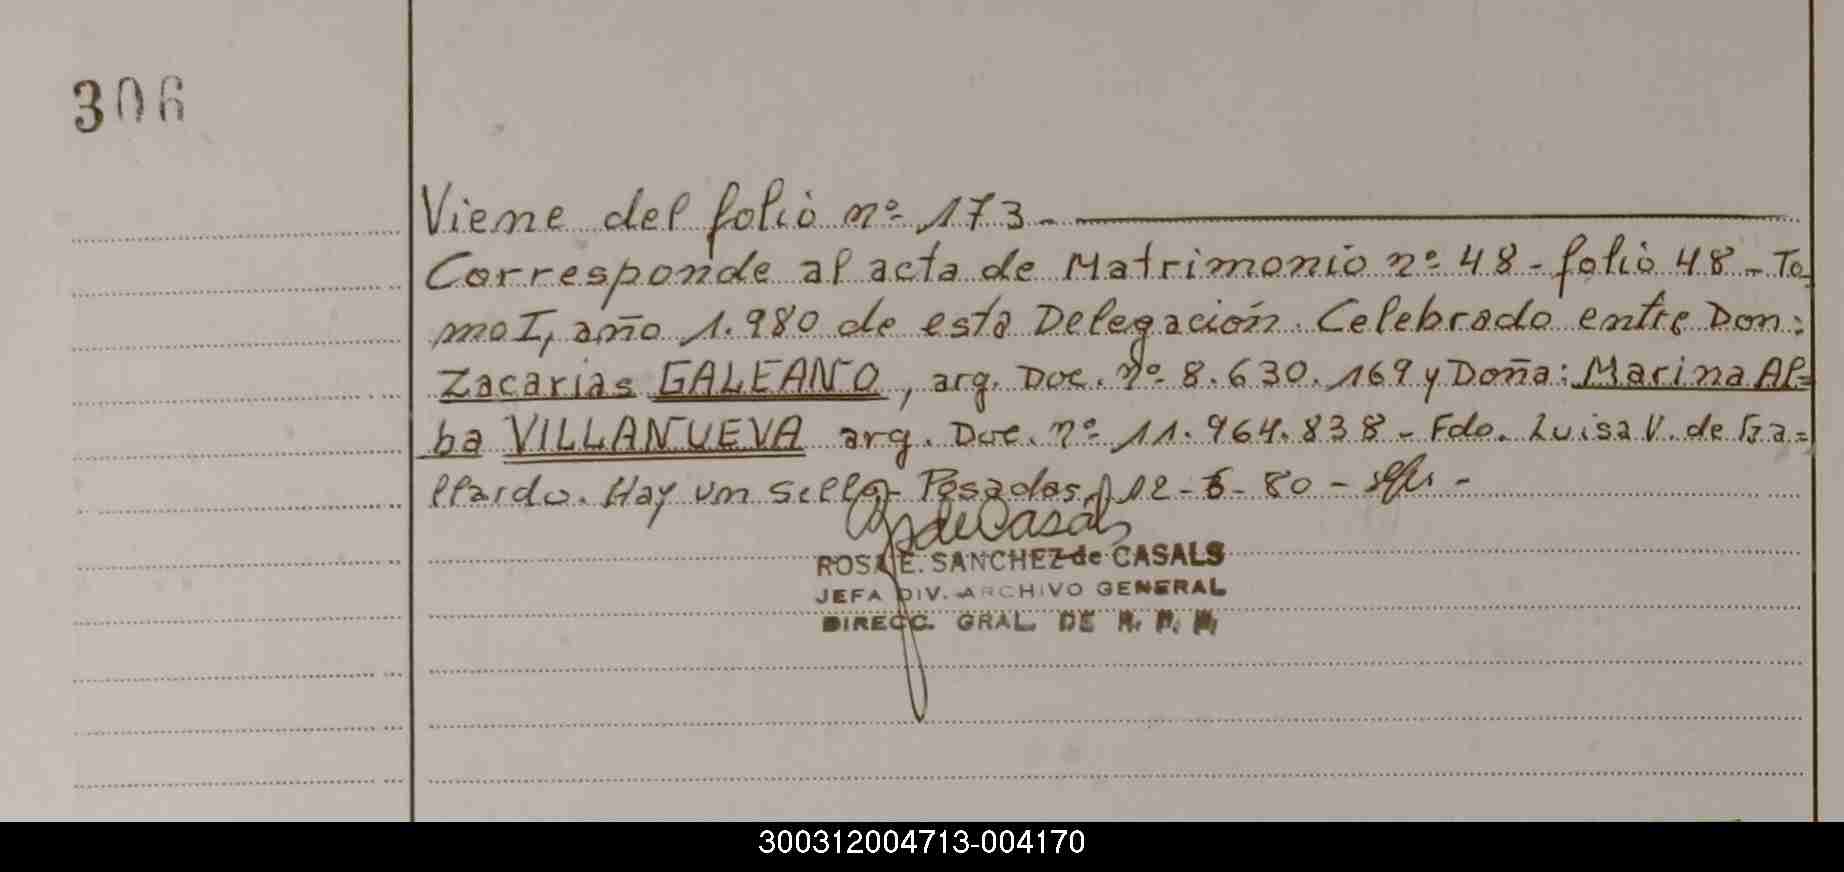 306
Viene del folio nº 173.-
Corresponde al acta de Matrimonio nº 48 - folio 48 - To-
mo I, año 1.980 de esta Delegación. Celebrado entre Don:
Zacarias GALEANO, arg. Doc. Nº 8.630.169 y Doña: Marina Al=
ba VILLANUEVA arg. Doc. nº 11.964.838 - Fdo. Luisa V. de Ga=
llardo. Hay un sello - Posadas, 12-6-80 -
de Casals
ROSA E. SANCHEZ de CASALS
JEFA DIV. ARCHIVO GENERAL
DIRECC. GRAL. DE
300312004713-004170